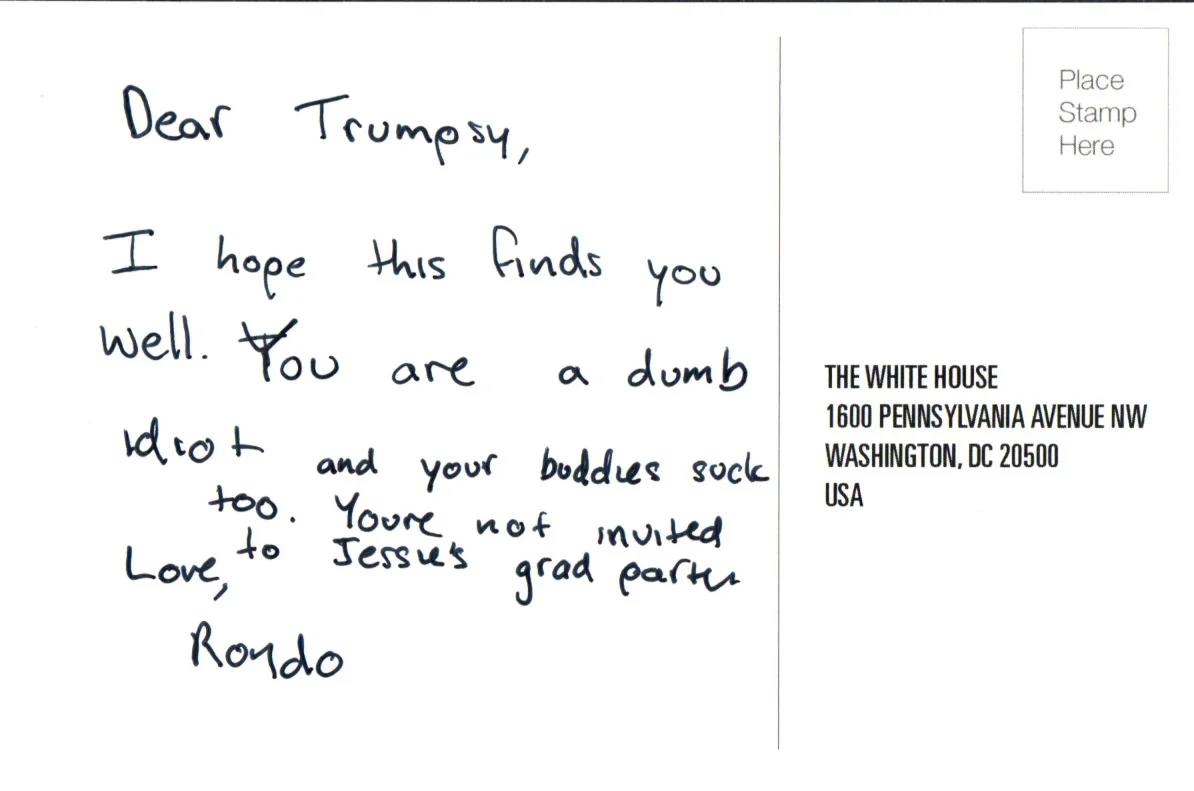 Dear Trumpsy,
I hope this finds you
well. You are a dumb
idiot and your buddies suck
too. Youre not invited
to Jessie's grad party
Love,
Rondo
Place
Stamp
Here
THE WHITE HOUSE
1600 PENNSYLVANIA AVENUE NW
WASHINGTON, DC 20500
USA